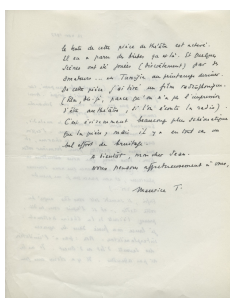 Le texte de cette pièce de théâtre est achevé.
Il en a paru des bribes çà et là. Et quelques
scènes ont été jouées (discrètement) par des
amateurs ... en Tunisie au printemps dernier.
De cette pièce j'ai tiré un film radiophonique.
(
C'est évidemment beaucoup plus schématique
que la pièce, mais il y a en tout cas un
bel effort de bruitage.
A bientôt, mon cher Jean.
Nous pensons affectueusement à vous,
Maurice T.